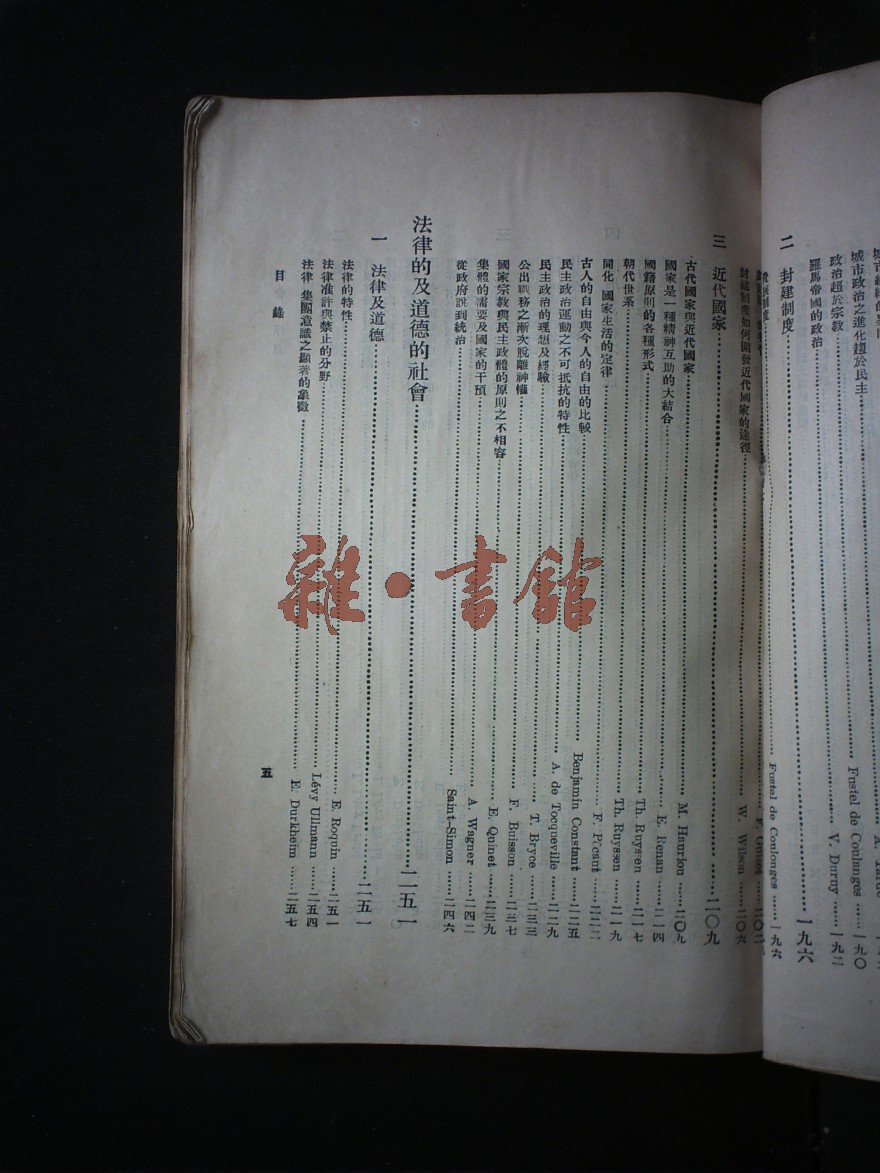 城市政治之進化趨於民主……Fustel de Coulanges……一九〇
政治超於宗教……V. Duruy……一九二
羅馬帝國的政治
二 封建制度……一九六
Fustel de Coulonges……一九六
封建制度如何開發近代國家的途徑……W. Wilson……二〇六
三 近代國家……二〇九
古代國家與近代國家……M. Hauriou……二〇九
國家是一種精神互助的大結合……E. Renan……二一四
國籍原則的各種形式……Th. Ruyssen……二一七
朝代世系……Th. Ruyssen……二一九
同化 國家生活的定律……F. Pécaut……二二二
古人的自由與今人的自由的比較……Benjamin Constant……二二五
民主政治運動之不可抵抗的特性……A. de Tocqueville……二二九
民主政治的理想及經驗……T. Bryce……二三三
公出職務之漸次脫離神權……F. Buisson……二三七
國家宗教與民主政體的原則之不相容……E. Quinet……二三九
集體的需要及國家的干預……A. Wagner……二四二
從政府說到統治……Saint-Simon……二四六
法律的及道德的社會……二五一
一 法律及道德……二五一
法律的特性……E. Roquin……二五一
法律准許與禁止的分野……Lévy Ullmann……二五四
法律 集團意識之顯著的象徵……E. Durkheim……二五七
目錄
五
雜·書館